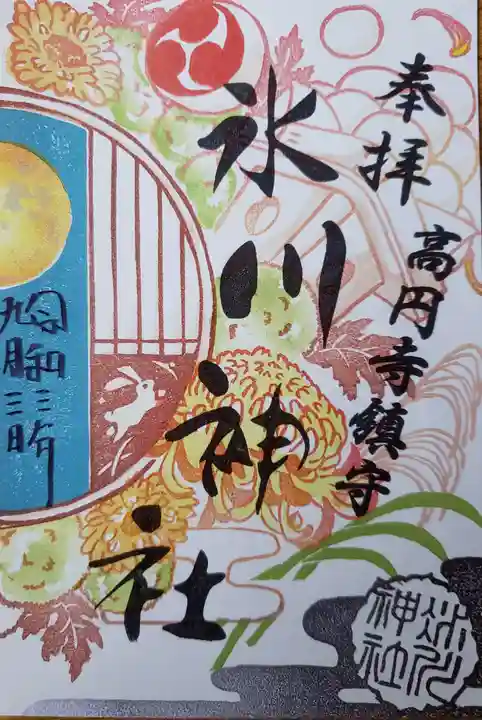 奉拝
高円寺鎮守
氷川神社
氷川
神社